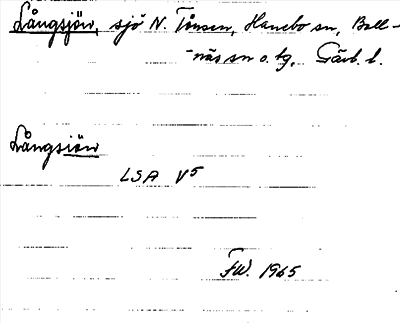 Långsjön, sjö N. Tönsen, Hanebo sn, Boll-
-näs sn o. tg, Gävb. l.
Långsjön
LSA V5
FW. 1965